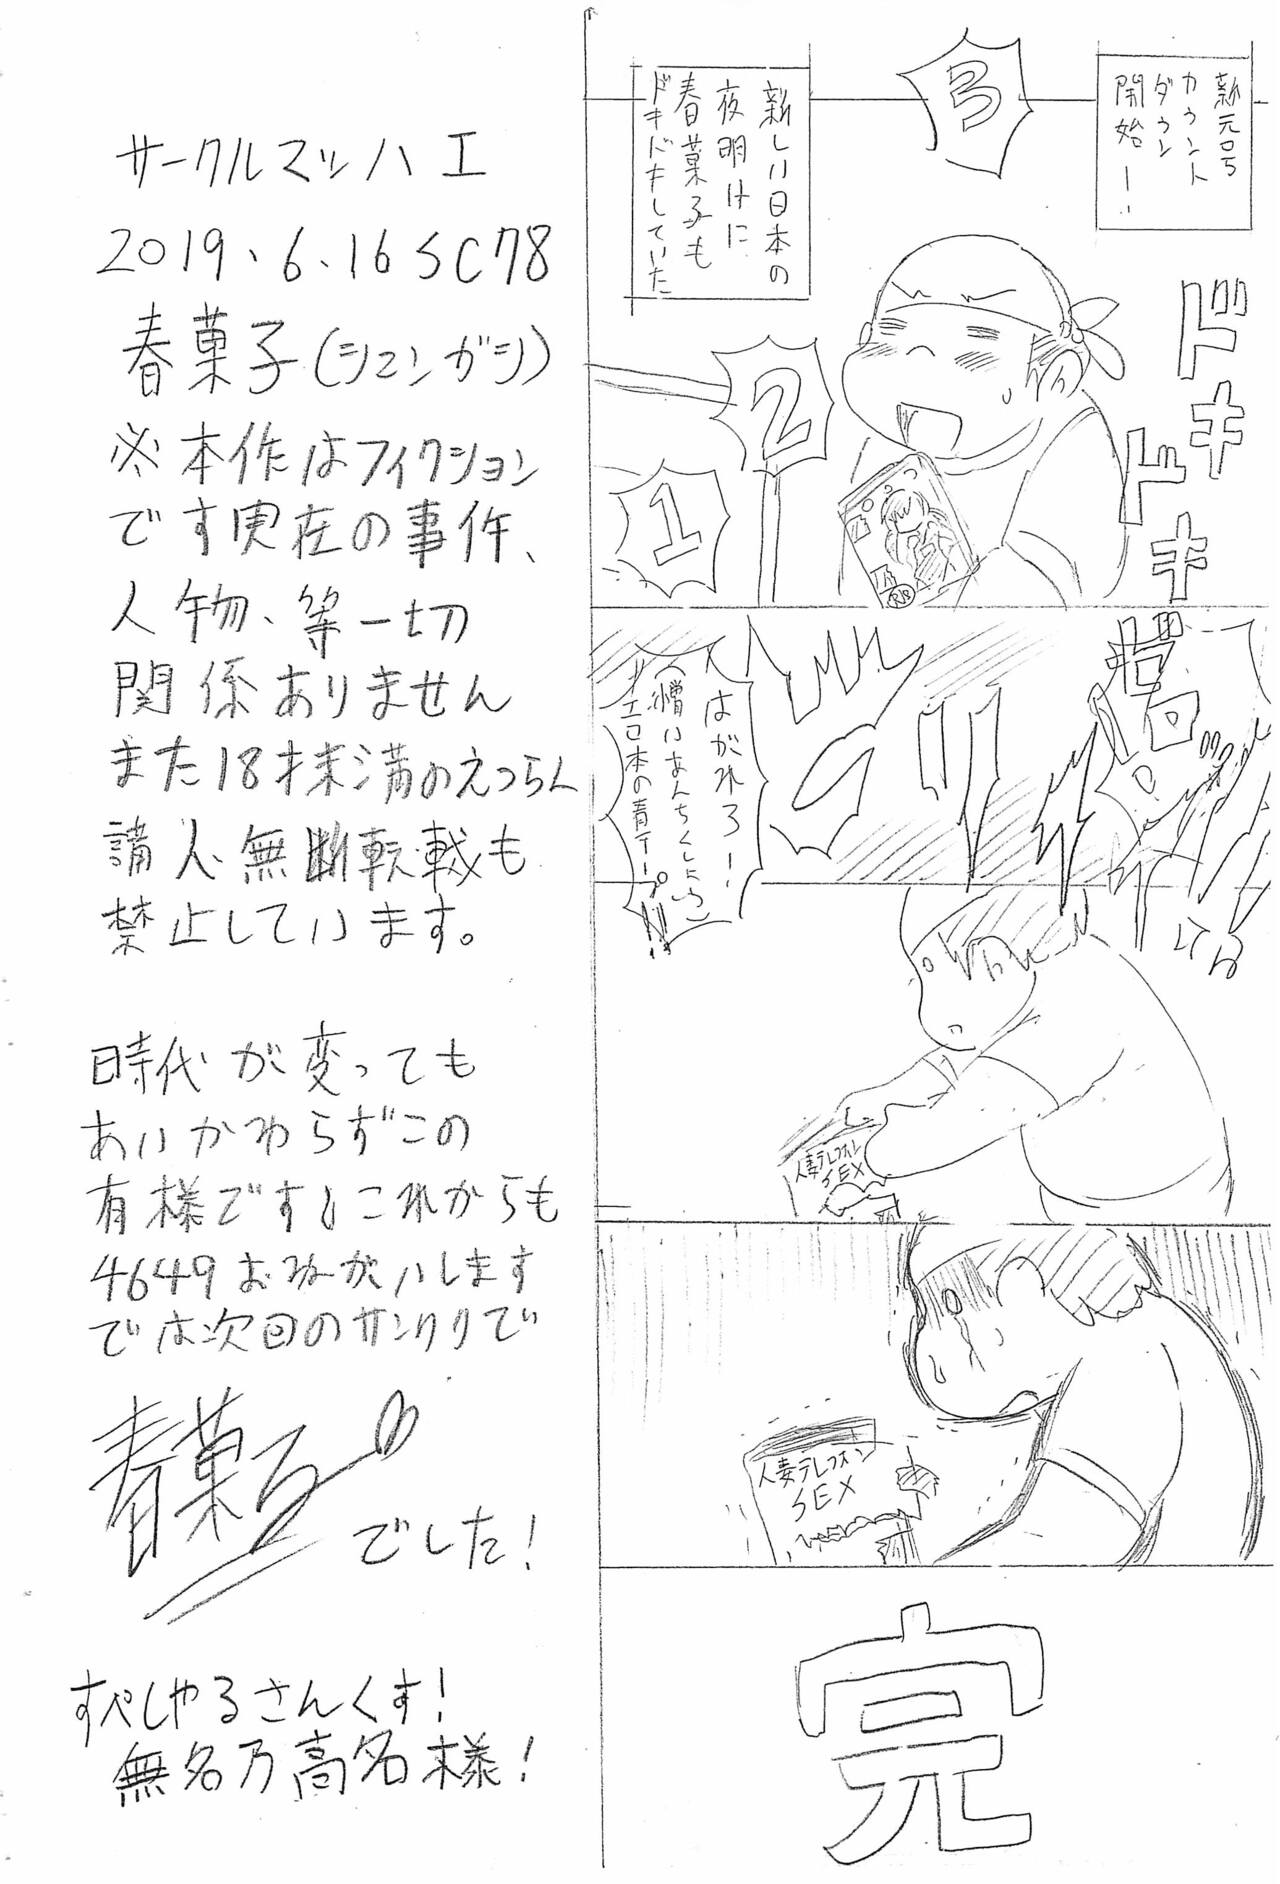 新元号
カウント
ダウン
開始ー!!
3
新しい日本の
夜明けに
春菓子も
ドキドキしていた
ドキ
ドキ
2
1
R18
はがれろー!
(憎いあんちくしょう)
エロ本の青テープ!!
人妻テレフォン
SEX
人妻テレフォン
SEX
完
サークルマッハ工
2019、6、16 SC78
春菓子(シュンガシ)
※本作はフィクション
です実在の事件、
人物、等一切
関係ありません
また18才未満のえつらん
購入、無断転載も
禁止しています。
時代が変っても
あいかわらずこの
有様です!これからも
4649おねがいします
では次回のサンクリで
春菓子
でした!
すぺしゃるさんくす!
無名乃高名様!